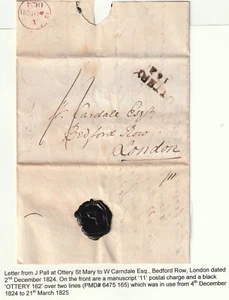 11
OTTERY
162
W. Cardale Esqr.
Bedford Row
London
Letter from J Pall at Ottery St Mary to W Carndale Esq., Bedford Row, London dated
2nd December 1824. On the front are a manuscript '11' postal charge and a black
'OTTERY 162' over two lines (PMD# 6475 165) which was in use from 4th December
1824 to 21st March 1825